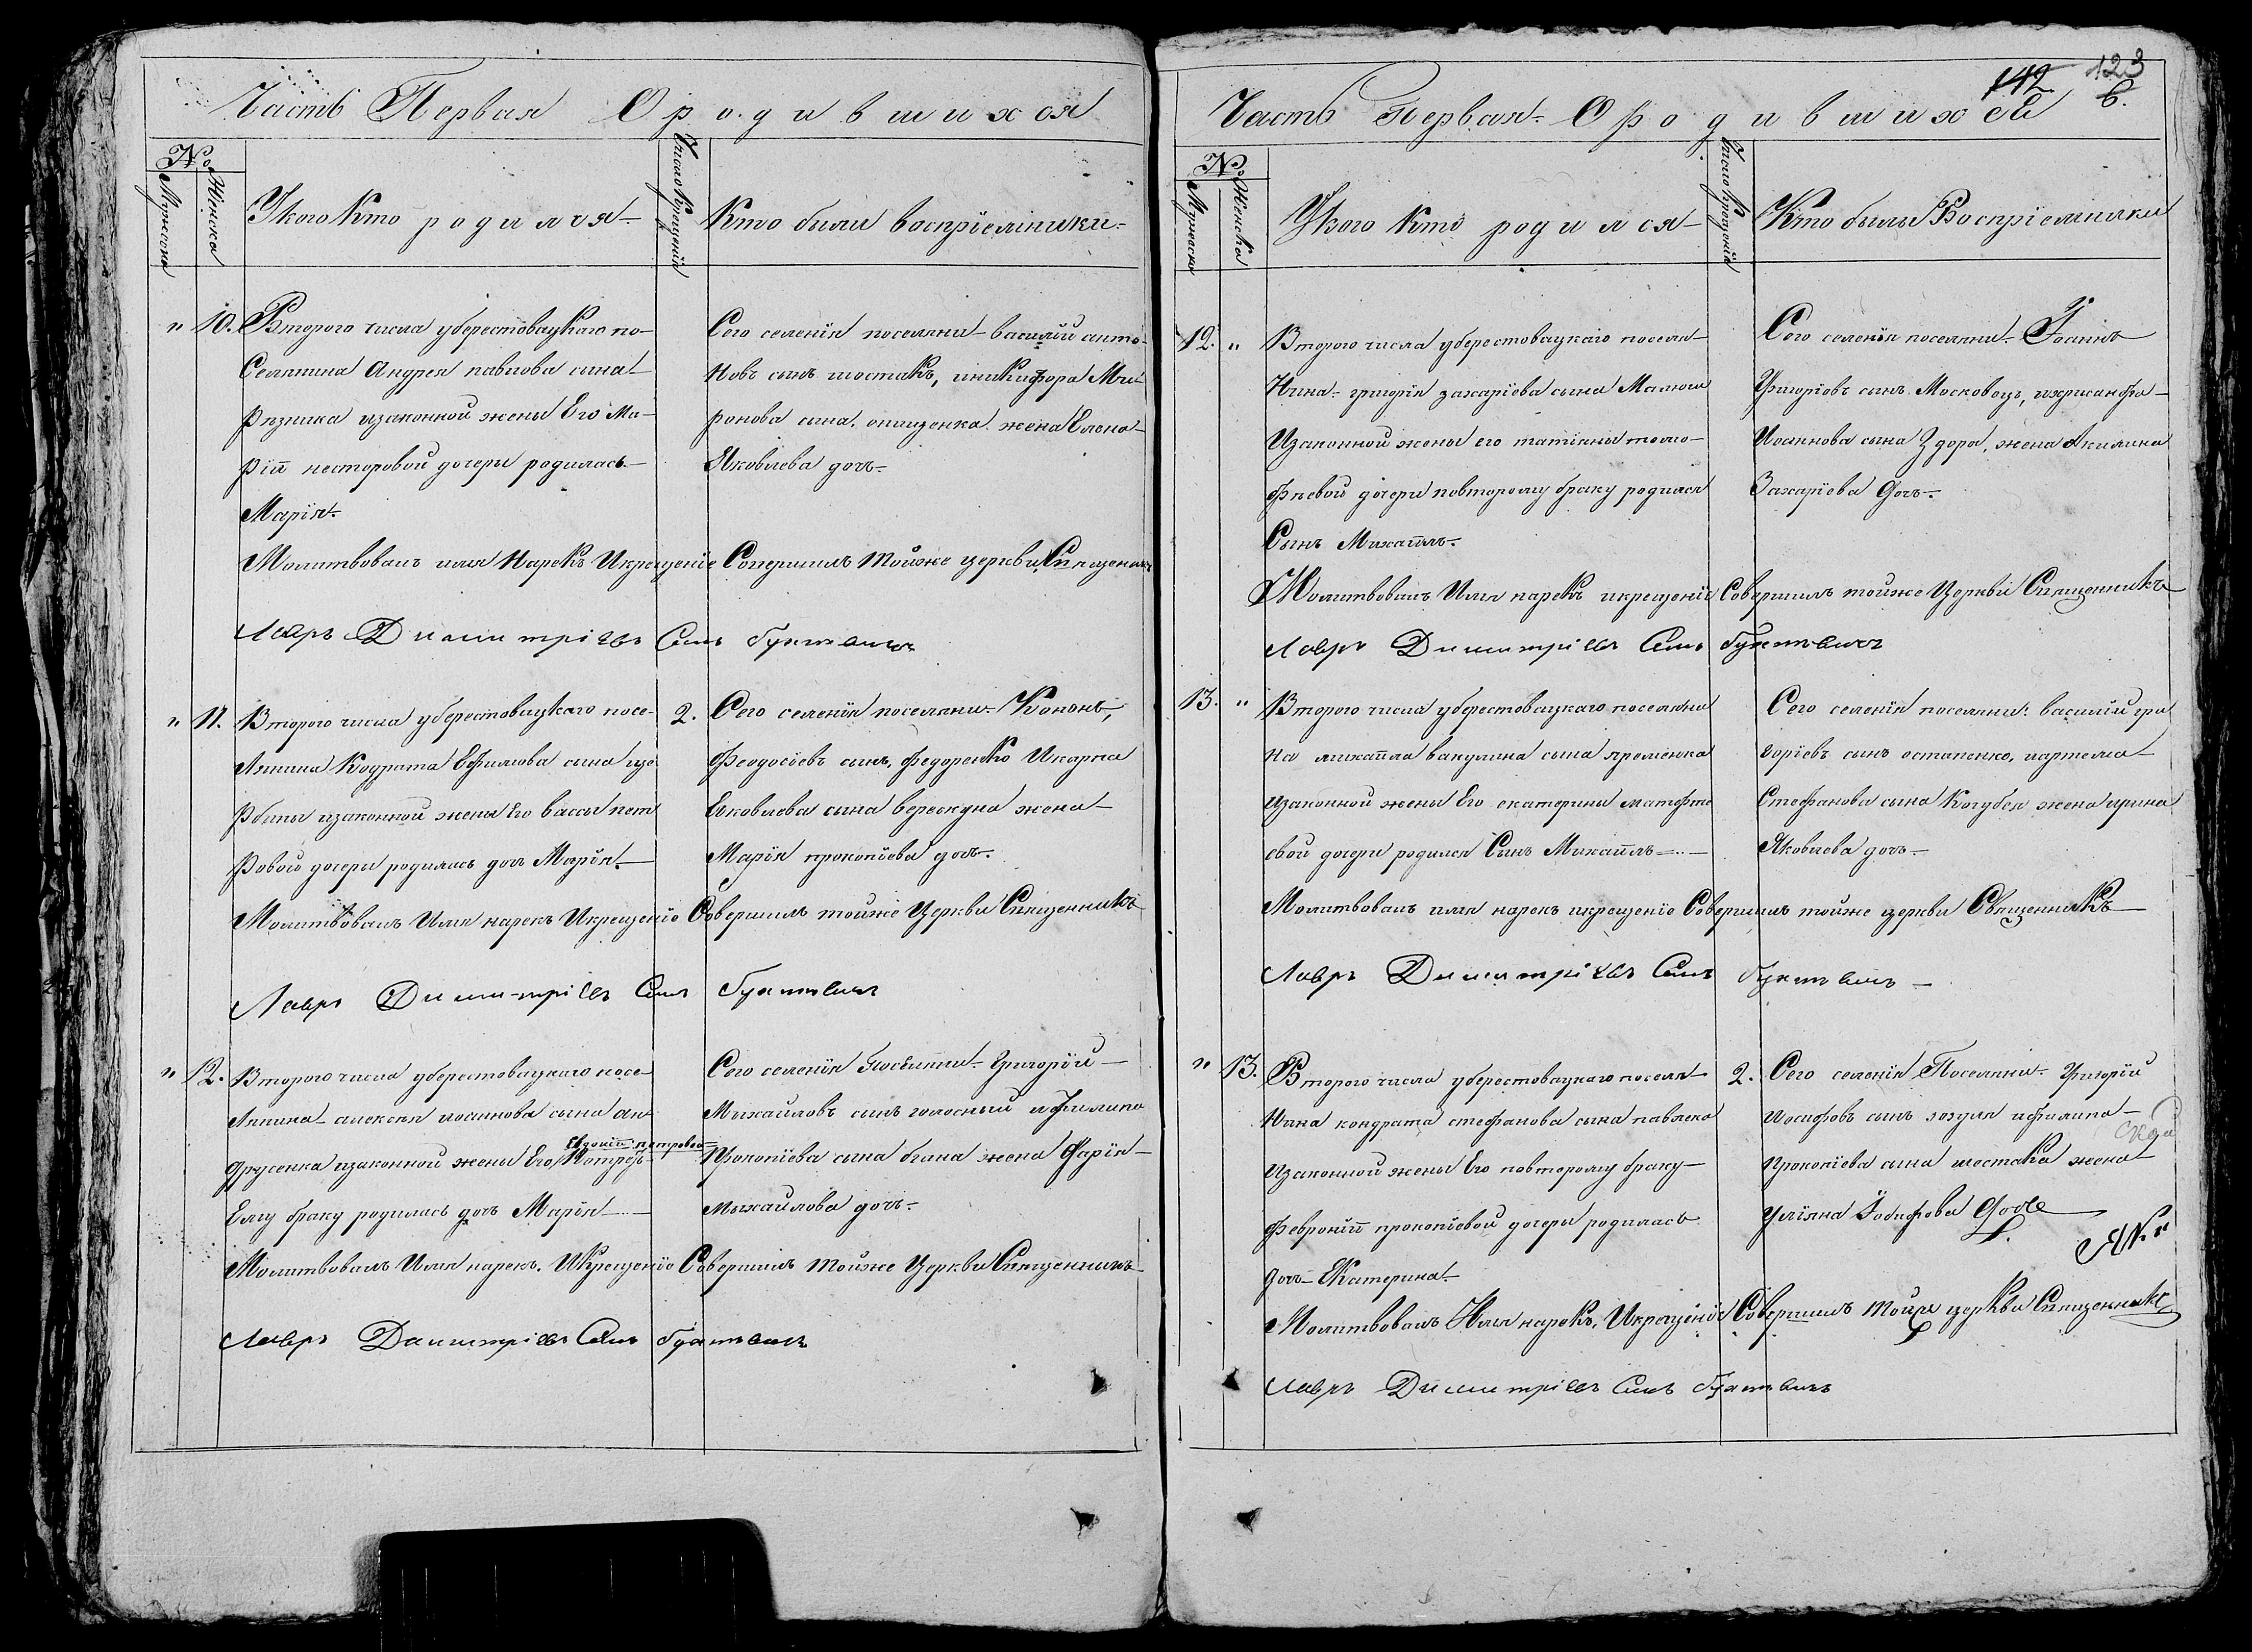 Часть Первая О родившихся
№
Мужеска
Женска
У кого Кто родился
Число крещенія
Кто были воспріемники
" 10. Второго числа уберестовацкаго по-
Селянина Андрея павлова сына
Рѣзника изаконной жены Его Ма-
ріи несторовой дочеры родилась
Марія
Молитвовалъ имя Нарекъ Икрещеніе Совершилъ тойже церкви Священникъ
Лавръ Димитріевъ Сынъ
Сего селенія поселяни василій анто-
новъ сынъ шостакъ, иникифора Ми-
ронова сына онищенка жена Елена
Яковлева дочъ
" 11. Второго числа уберестовацкаго посе-
лянина Кодрата Ефимова сына
изаконной жены Его вассы пет
ровой дочеры родилась дочъ Марія
Молитвовалъ Имя нарекъ Икрещеніе Совершилъ тойже Церкви Священникъ
Лавръ Димитріевъ Сынъ
2. Сего селенія поселяни Кононъ,
феодосіевъ сынъ, федоренко Икарпа
Яковлева сына верескуна жена
Марія прокопіева дочъ
" 12. Второго числа уберестовацкаго посе-
лянина алексея иоаннова сына ан-
друсенка изаконной жены Его
Евдокіи петровой
Ему браку родилась дочъ Марія
Молитвовалъ Имя нарекъ. Икрещеніе Совершилъ тойже Церкви Священникъ
Лавръ Димитріевъ Сынъ
Сего селенія Григорій
Михайловъ сынъ голосный ифилипа
Прокопіева сына жена Дарія
михайлова дочъ
142
123
Часть Первая О родившихся
№
Мужеска
Женска
У кого Кто родился
Число крещенія
Кто были Воспріемники
12. " Второго числа уберестовацкаго поселя-
нина григорія захаріева сына Малюги
Изаконной жены его татіяны тимо-
феевой дочери повторому браку родился
Сынъ Михаилъ
Молитвовалъ Имя нарекъ икрещеніе Совершилъ тойже Церкви Священникъ
Лавръ Димитріевъ Сынъ
Сего селенія поселяни Іоаннъ
Григоріевъ сынъ Московецъ, ихрисанфа
Иоаннова сына Здора, жена Акилина
Захаріева Дочъ
13. " Второго числа уберестовацкаго поселяни
на михаила вакулина сына яременка
изаконной жены Его екатерины матфее
евой дочери родился Сынъ Михаилъ
Молитвовалъ имя нарекъ икрещеніе Совершилъ тойже церкви Священникъ
Лавръ Димитріевъ Сынъ
Сего селенія поселяни: василій гри
горіевъ сынъ остапенко, иартема
Стефанова сына Кочубея жена ирина
Яковлева дочъ
" 13. Второго числа уберестовацкаго поселя-
нина кондрата стефанова сына
Изаконной жены Его повторому браку
февроніи прокопіевой дочеры родилась
дочъ Екатерина
Молитвовалъ Имя нарекъ, Икрещеніе Совершилъ тойже церкви Священникъ
Лавръ Димитріевъ Сынъ
2. Сего селенія Поселяни Григорій
иосифовъ сынъ зозуля ифилипа
Прокопіева сына шостака жена
уліяна Іосифова